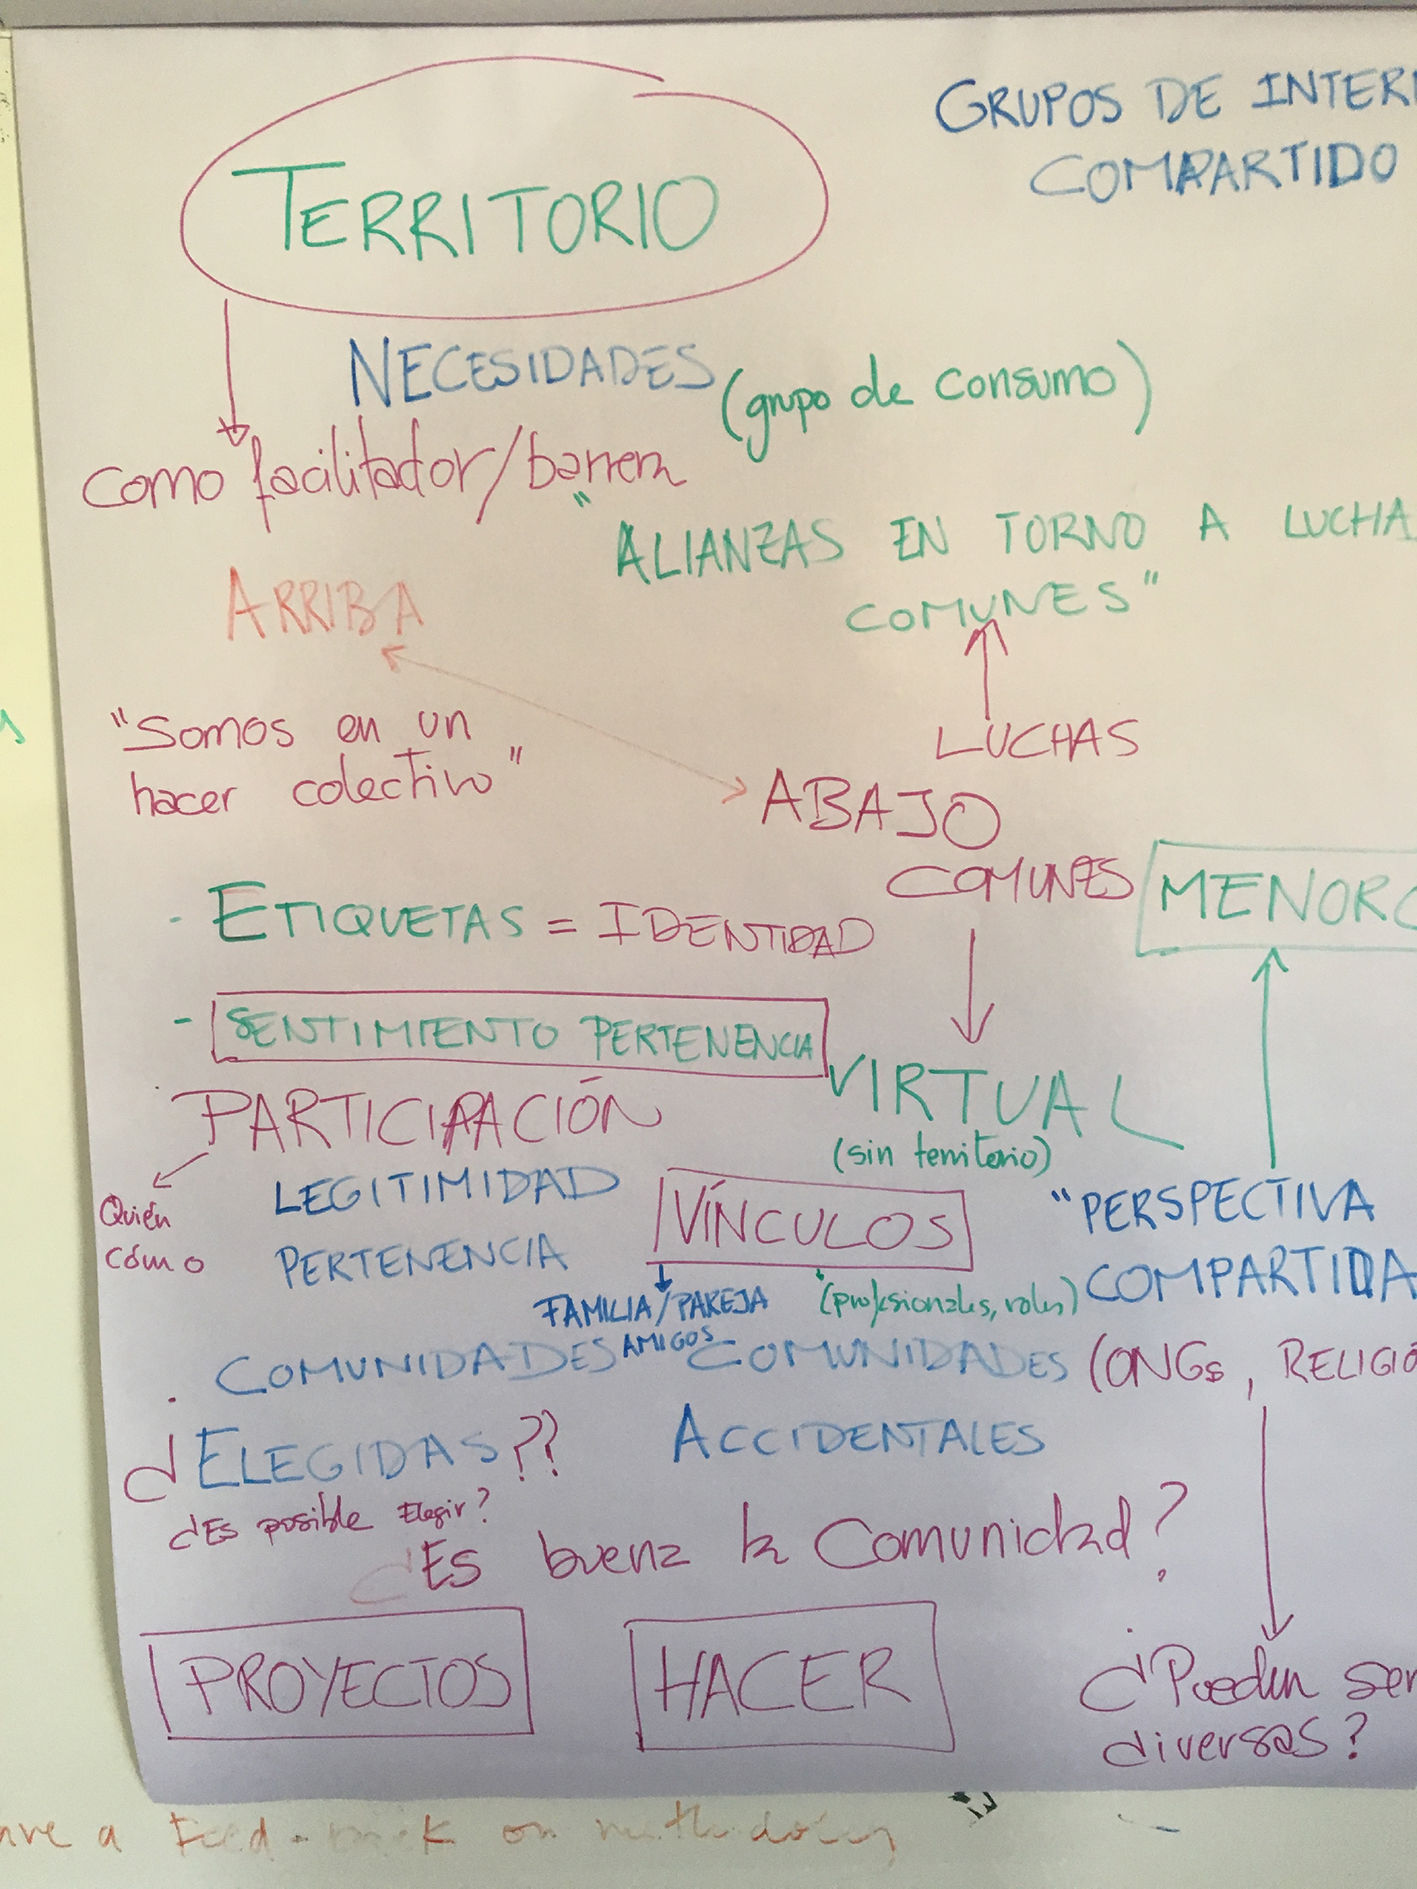 TERRITORIO
GRUPOS DE INTER
COMPARTIDO
NECESIDADES (grupo de consumo)
como facilitador/barrera
"ALIANZAS EN TORNO A LUCHA
COMUNES"
ARRIBA
"Somos en un
hacer colectivo"
LUCHAS
ABAJO
COMUNES
MENORC
- ETIQUETAS = IDENTIDAD
- SENTIMIENTO PERTENENCIA
VIRTUAL
(sin territorio)
PARTICIPACIÓN
Quién
cómo
LEGITIMIDAD
PERTENENCIA
VÍNCULOS
"PERSPECTIVA
COMPARTIDA
FAMILIA/PAREJA
AMIGOS
(profesionales, roles)
COMUNIDADES
¿ELEGIDAS??
COMUNIDADES (ONGs, RELIGIÓ
ACCIDENTALES
¿Es posible Elegir?
¿Es buena la Comunidad?
PROYECTOS
HACER
¿Pueden ser
diversas?
a Feed-back on